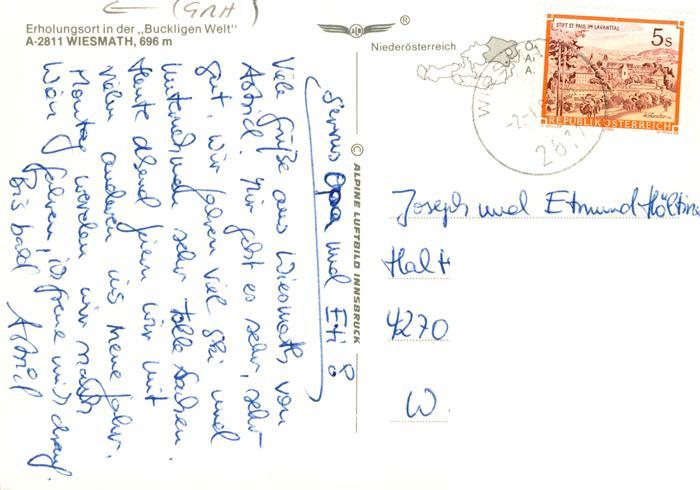 ← (GRH)
Erholungsort in der „Buckligen Welt"
A-2811 WIESMATH, 696 m
®
Niederösterreich
STIFT ST. PAUL IM LAVANTTAL
5s
REPUBLIK ÖSTERREICH
2811
© ALPINE LUFTBILD INNSBRUCK
Servus Opa und Eti
Viele Grüße aus Wiesmath von
Astrid. Mir geht es sehr, sehr
gut. Wir fahren viel Ski und
unternehmen sehr tolle Sachen.
Heute abend feiern wir mit
vielen anderen ins neue Jahr.
Montag werden wir nach
Wien fahren, ich freue mich drauf.
Bis bald Astrid
Joseph und Etmund
Halt
4270
W.